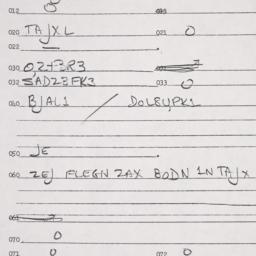 012 0
020 TAJXL 021 0
022
030 0,2+3R3
032 SADZ3FK3 033 0
040 BJAL1 / DOLSUPK1
050 JE
060 ZEJ FLEGN ZAX BODN 1N TAJX
061
070 0
071 0 072 0